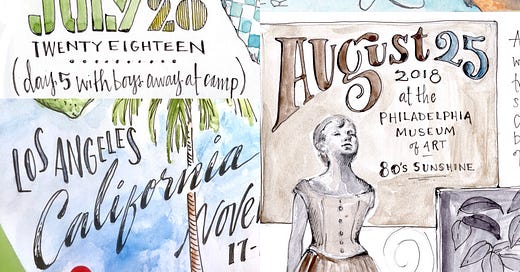 JULY 28
TWENTY EIGHTEEN
(day 5 with boys away at camp)
LOS ANGELES
California
17-
August 25
2018
at the
PHILADELPHIA
MUSEUM
of ART
80's SUNSHINE